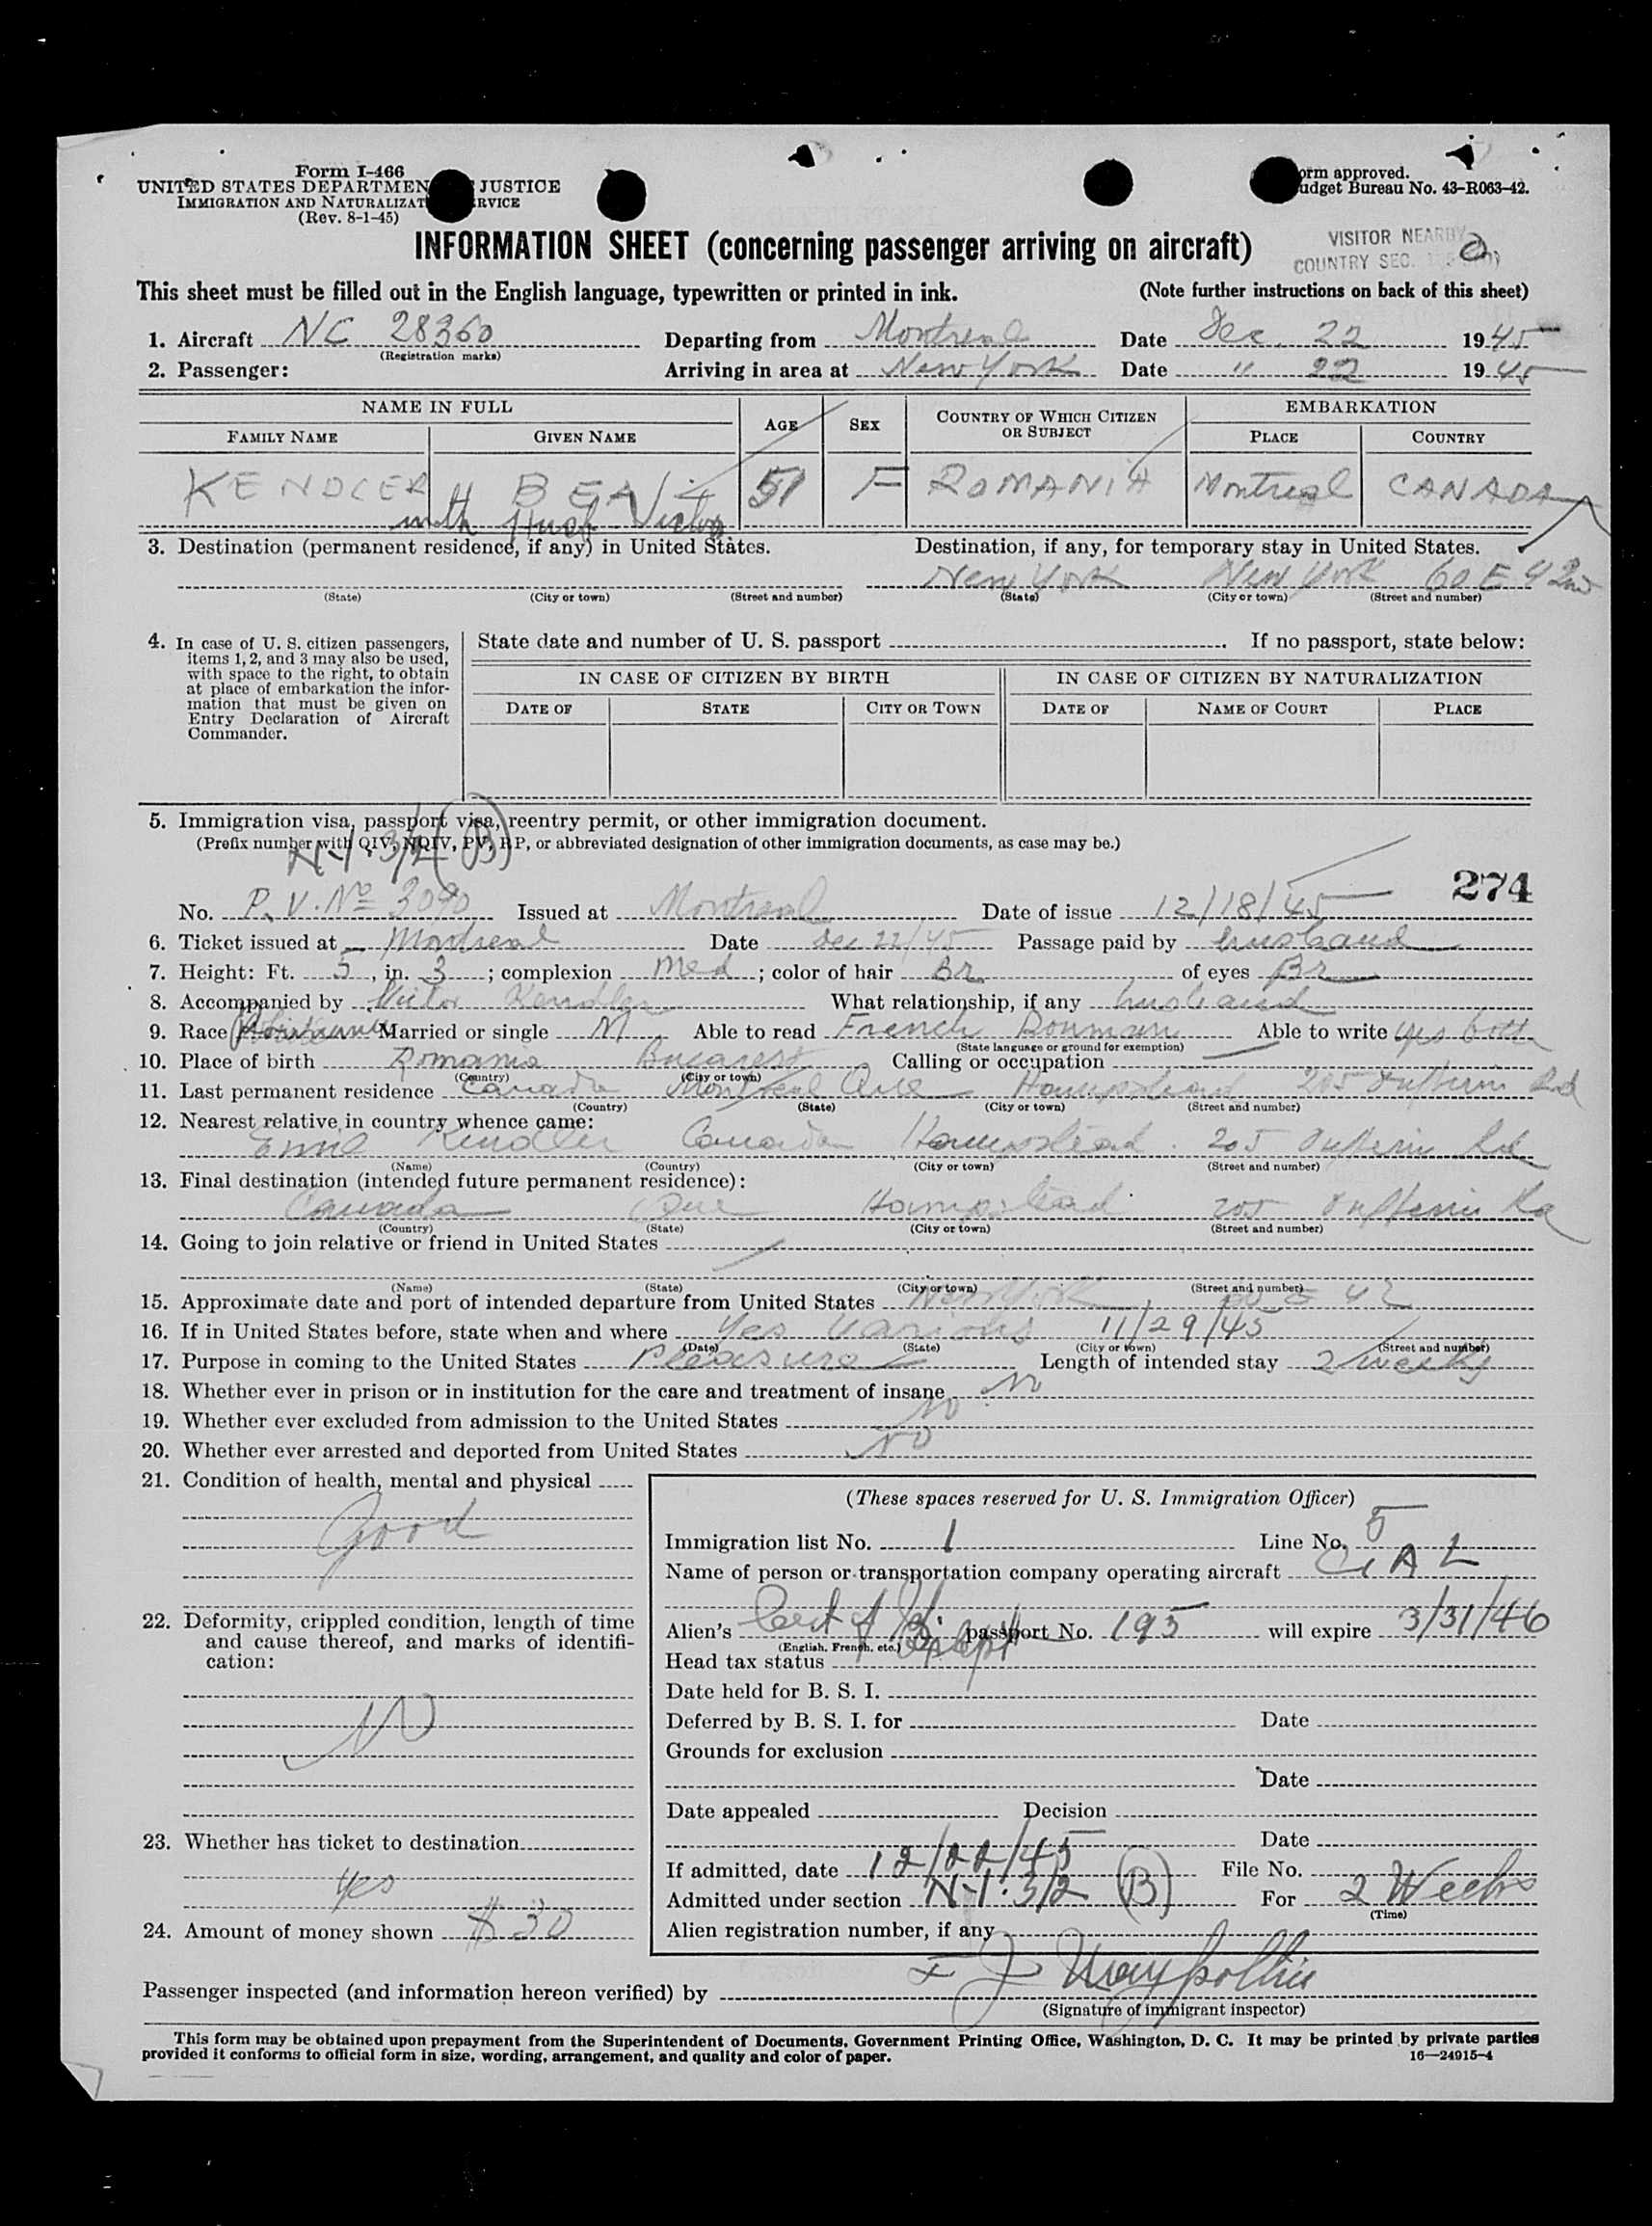 Form I-466
UNITED STATES DEPARTMEN JUSTICE
IMMIGRATION AND NATURALIZAT RVICE
(Rev. 8-1-45)
orm approved.
udget Bureau No. 43-R063-42.
INFORMATION SHEET (concerning passenger arriving on aircraft)
VISITOR NEARBY
COUNTRY SEC.
This sheet must be filled out in the English language, typewritten or printed in ink. (Note further instructions on back of this sheet)
1. Aircraft NC 28360 Departing from Montreal Date Dec. 22 1945
(Registration marks)
2. Passenger: Arriving in area at New York Date " 22 1945
NAME IN FULL AGE SEX COUNTRY OF WHICH CITIZEN OR SUBJECT EMBARKATION
FAMILY NAME GIVEN NAME PLACE COUNTRY
KENDLER BEA 51 F ROMANIA Montreal CANADA
with Husb Victor
3. Destination (permanent residence, if any) in United States. Destination, if any, for temporary stay in United States.
New York New York 60 E 42nd
(State) (City or town) (Street and number) (State) (City or town) (Street and number)
4. In case of U. S. citizen passengers, items 1, 2, and 3 may also be used, with space to the right, to obtain at place of embarkation the information that must be given on Entry Declaration of Aircraft Commander.
State date and number of U. S. passport If no passport, state below:
IN CASE OF CITIZEN BY BIRTH IN CASE OF CITIZEN BY NATURALIZATION
DATE OF STATE CITY OR TOWN DATE OF NAME OF COURT PLACE
5. Immigration visa, passport visa, reentry permit, or other immigration document.
(Prefix number with QIV, NQIV, PV, RP, or abbreviated designation of other immigration documents, as case may be.)
N-1. 3/2 (B)
274
No. P.V. No 3090 Issued at Montreal Date of issue 12/18/45
6. Ticket issued at Montreal Date Dec 22/45 Passage paid by husband
7. Height: Ft. 5, in. 3; complexion Med; color of hair Br of eyes Br
8. Accompanied by Victor Kendler What relationship, if any husband
9. Race Married or single M Able to read French Roumain Able to write yes both
(State language or ground for exemption)
10. Place of birth Romania Bucarest Calling or occupation
(Country) (City or town)
11. Last permanent residence Canada Montreal Que Hampstead 205 Dufferin Rd
(Country) (State) (City or town) (Street and number)
12. Nearest relative in country whence came:
Emil Kendler Canada Hampstead. 205 Dufferin Rd
(Name) (Country) (City or town) (Street and number)
13. Final destination (intended future permanent residence):
Canada Que Hampstead 205 Dufferin Rd
(Country) (State) (City or town) (Street and number)
14. Going to join relative or friend in United States
(Name) (State) (City or town) (Street and number)
15. Approximate date and port of intended departure from United States New York 60 E 42
16. If in United States before, state when and where Yes Various 11/29/45
(Date) (State) (City or town) (Street and number)
17. Purpose in coming to the United States Pleasure Length of intended stay 2 weeks
18. Whether ever in prison or in institution for the care and treatment of insane No
19. Whether ever excluded from admission to the United States No
20. Whether ever arrested and deported from United States No
21. Condition of health, mental and physical
Good
22. Deformity, crippled condition, length of time and cause thereof, and marks of identification:
No
23. Whether has ticket to destination
Yes
24. Amount of money shown $30
(These spaces reserved for U. S. Immigration Officer)
Immigration list No. 1 Line No. 5
Name of person or transportation company operating aircraft C A L
Alien's Cert of Id. passport No. 195 will expire 3/31/46
(English, French, etc.)
Head tax status Exempt
Date held for B. S. I.
Deferred by B. S. I. for Date
Grounds for exclusion
Date
Date appealed Decision
Date
If admitted, date 12/22/45 File No.
Admitted under section N-1. 3/2 (B) For 2 Weeks
(Time)
Alien registration number, if any
Passenger inspected (and information hereon verified) by
(Signature of immigrant inspector)
This form may be obtained upon prepayment from the Superintendent of Documents, Government Printing Office, Washington, D. C. It may be printed by private parties
provided it conforms to official form in size, wording, arrangement, and quality and color of paper. 16—24915-4